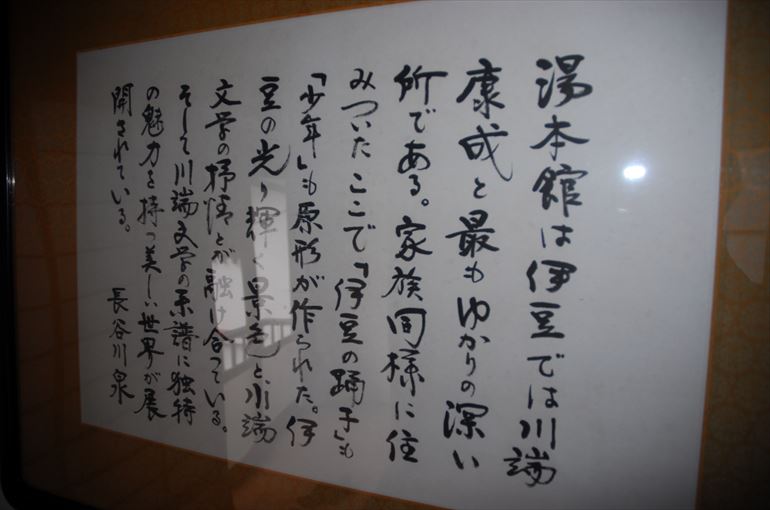 湯本館は伊豆では川端
康成と最もゆかりの深い
所である。家族同様に住
みついたここで「伊豆の踊子」も
「少年」も原形が作られた。伊
豆の光り輝く景色と川端
文学の抒情とが融け合っている。
そして川端文学の系譜に独特
の魅力を持つ美しい世界が展
開されている。 長谷川泉